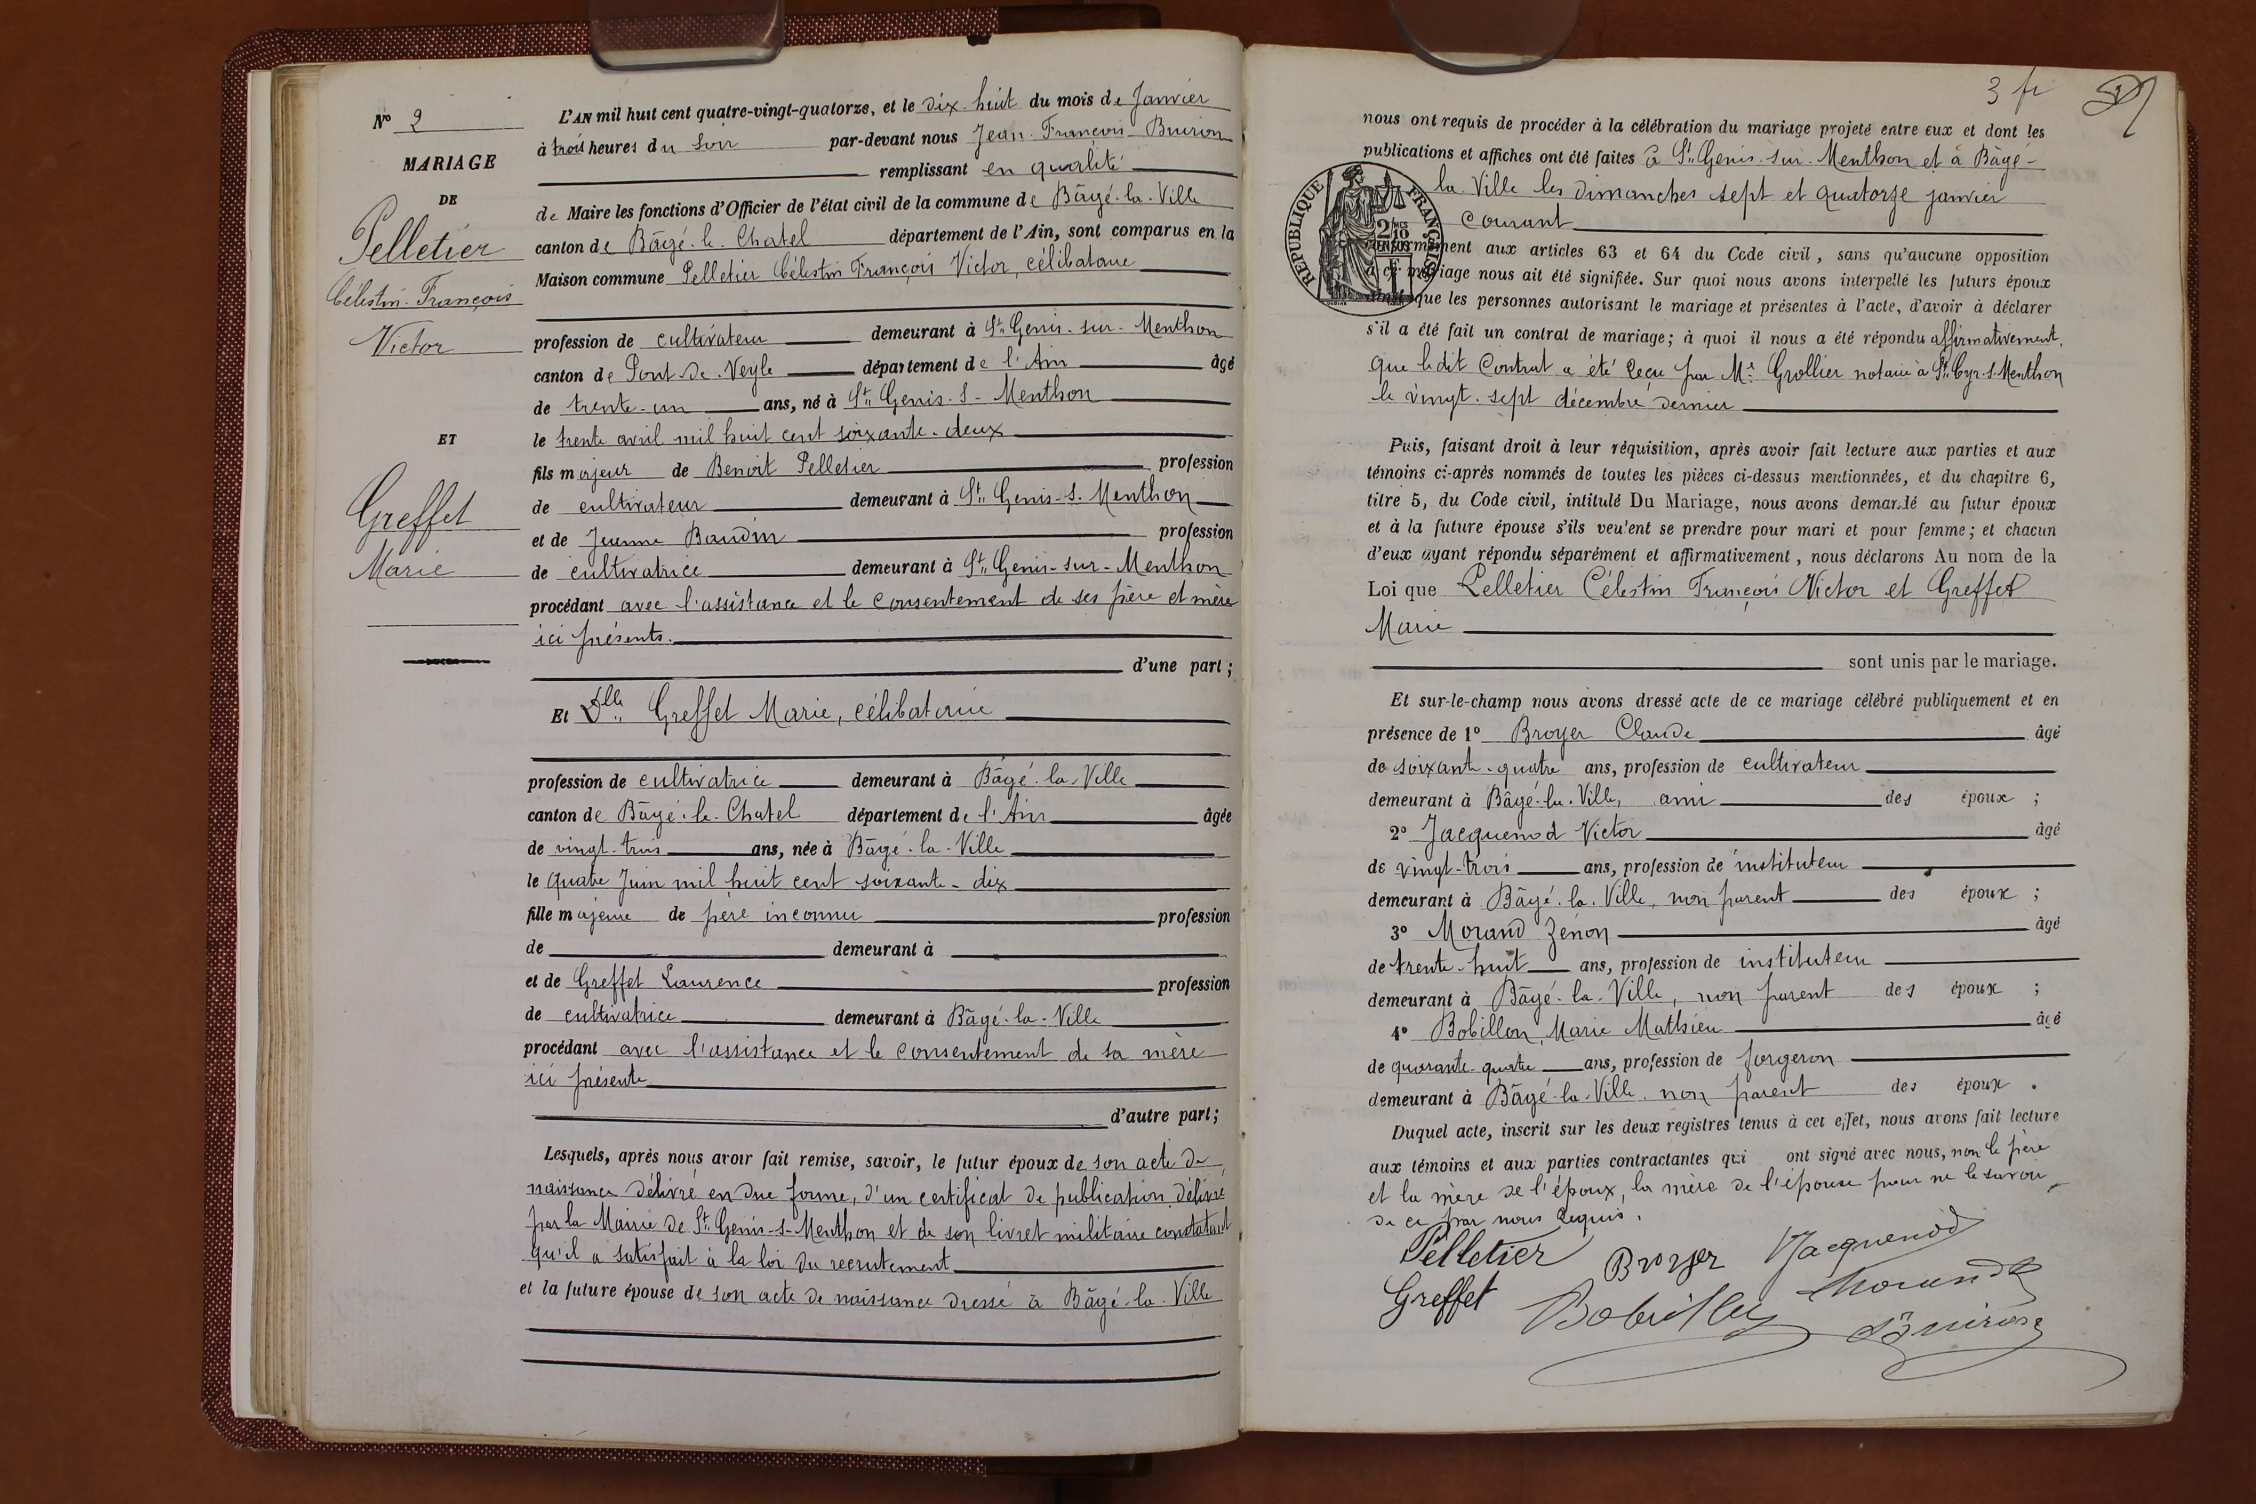 N° 2
MARIAGE
DE
Pelletier
Célestin-François
Victor
ET
Greffet
Marie
L'AN mil huit cent quatre-vingt-quatorze, et le dix-huit du mois de Janvier
à trois heures du soir par-devant nous Jean-François Buiron
remplissant en qualité
de Maire les fonctions d'Officier de l'état civil de la commune de Bâgé-la-Ville
canton de Bâgé-le-Chatel département de l'Ain, sont comparus en la
Maison commune Pelletier Célestin François Victor, célibataire
profession de cultivateur demeurant à St Genis-sur-Menthon
canton de Pont-de-Veyle département de l'Ain âgé
de trente-un ans, né à St Genis-s-Menthon
le trente avril mil huit cent soixante-deux
fils majeur de Benoit Pelletier profession
de cultivateur demeurant à St Genis-s-Menthon
et de Jeanne Baudin profession
de cultivatrice demeurant à St Genis-sur-Menthon
procédant avec l'assistance et le consentement de ses père et mère
ici présents.
d'une part;
Et Dlle Greffet Marie, célibataire
profession de cultivatrice demeurant à Bâgé-la-Ville
canton de Bâgé-le-Chatel département de l'Ain âgée
de vingt-trois ans, née à Bâgé-la-Ville
le quatre Juin mil huit cent soixante-dix
fille majeure de père inconnu profession
de demeurant à
et de Greffet Laurence profession
de cultivatrice demeurant à Bâgé-la-Ville
procédant avec l'assistance et le consentement de sa mère
ici présente
d'autre part;
Lesquels, après nous avoir fait remise, savoir, le futur époux de son acte de
naissance délivré en due forme, d'un certificat de publication délivré
par la Mairie de St Genis-s-Menthon et de son livret militaire constatant
qu'il a satisfait à la loi du recrutement
et la future épouse de son acte de naissance dressé à Bâgé-la-Ville
3 fr
nous ont requis de procéder à la célébration du mariage projeté entre eux et dont les
publications et affiches ont été faites à St Genis-sur-Menthon et à Bâgé-
la-Ville les dimanches sept et quatorze janvier
courant
RÉPUBLIQUE FRANÇAISE
2/10 EN SUS
conformément aux articles 63 et 64 du Code civil, sans qu'aucune opposition
à ce mariage nous ait été signifiée. Sur quoi nous avons interpellé les futurs époux
ainsi que les personnes autorisant le mariage et présentes à l'acte, d'avoir à déclarer
s'il a été fait un contrat de mariage; à quoi il nous a été répondu affirmativement,
que ledit contrat a été reçu par Me Grollier notaire à St Cyr s. Menthon
le vingt-sept décembre dernier
Puis, faisant droit à leur réquisition, après avoir fait lecture aux parties et aux
témoins ci-après nommés de toutes les pièces ci-dessus mentionnées, et du chapitre 6,
titre 5, du Code civil, intitulé Du Mariage, nous avons demandé au futur époux
et à la future épouse s'ils veulent se prendre pour mari et pour femme; et chacun
d'eux ayant répondu séparément et affirmativement, nous déclarons Au nom de la
Loi que Pelletier Célestin François Victor et Greffet
Marie
sont unis par le mariage.
Et sur-le-champ nous avons dressé acte de ce mariage célébré publiquement et en
présence de 1° Broyer Claude âgé
de soixante-quatre ans, profession de cultivateur
demeurant à Bâgé-la-Ville, ami des époux ;
2° Jacquenod Victor âgé
de vingt-trois ans, profession de instituteur
demeurant à Bâgé-la-Ville, non parent des époux ;
3° Morand Zénon âgé
de trente-huit ans, profession de instituteur
demeurant à Bâgé-la-Ville, non parent des époux ;
4° Bobillon, Marie Mathieu âgé
de quarante-quatre ans, profession de forgeron
demeurant à Bâgé-la-Ville, non parent des époux.
Duquel acte, inscrit sur les deux registres tenus à cet effet, nous avons fait lecture
aux témoins et aux parties contractantes qui ont signé avec nous, non le père
et la mère de l'époux, la mère de l'épouse pour ne le savoir,
de ce par nous requis.
Pelletier Broyer VJacquenod
Greffet Bobillon Morand
Buiron